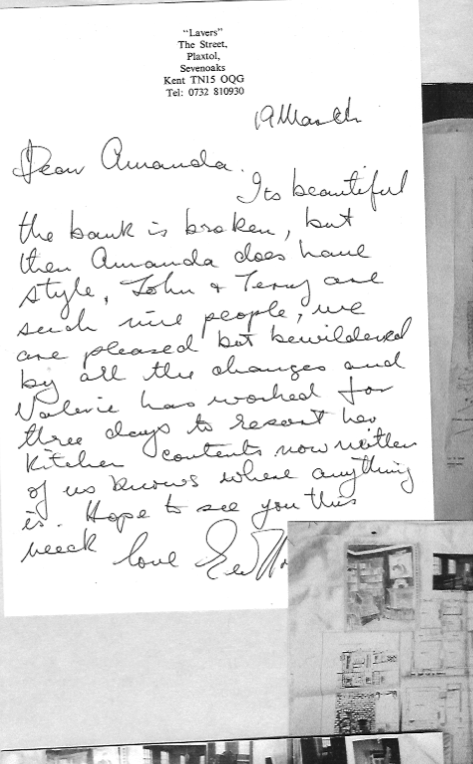 "Lavers"
The Street,
Plaxtol,
Sevenoaks
Kent TN15 OQG
Tel: 0732 810930
19 March
Dear Amanda.
Its beautiful
the bank is broken, but
then Amanda does have
style, John & Terry are
such nice people, we
are pleased but bewildered
by all the changes and
Valerie has worked for
three days to resort her
kitchen contents now neither
of us knows where anything
is. Hope to see you this
week love